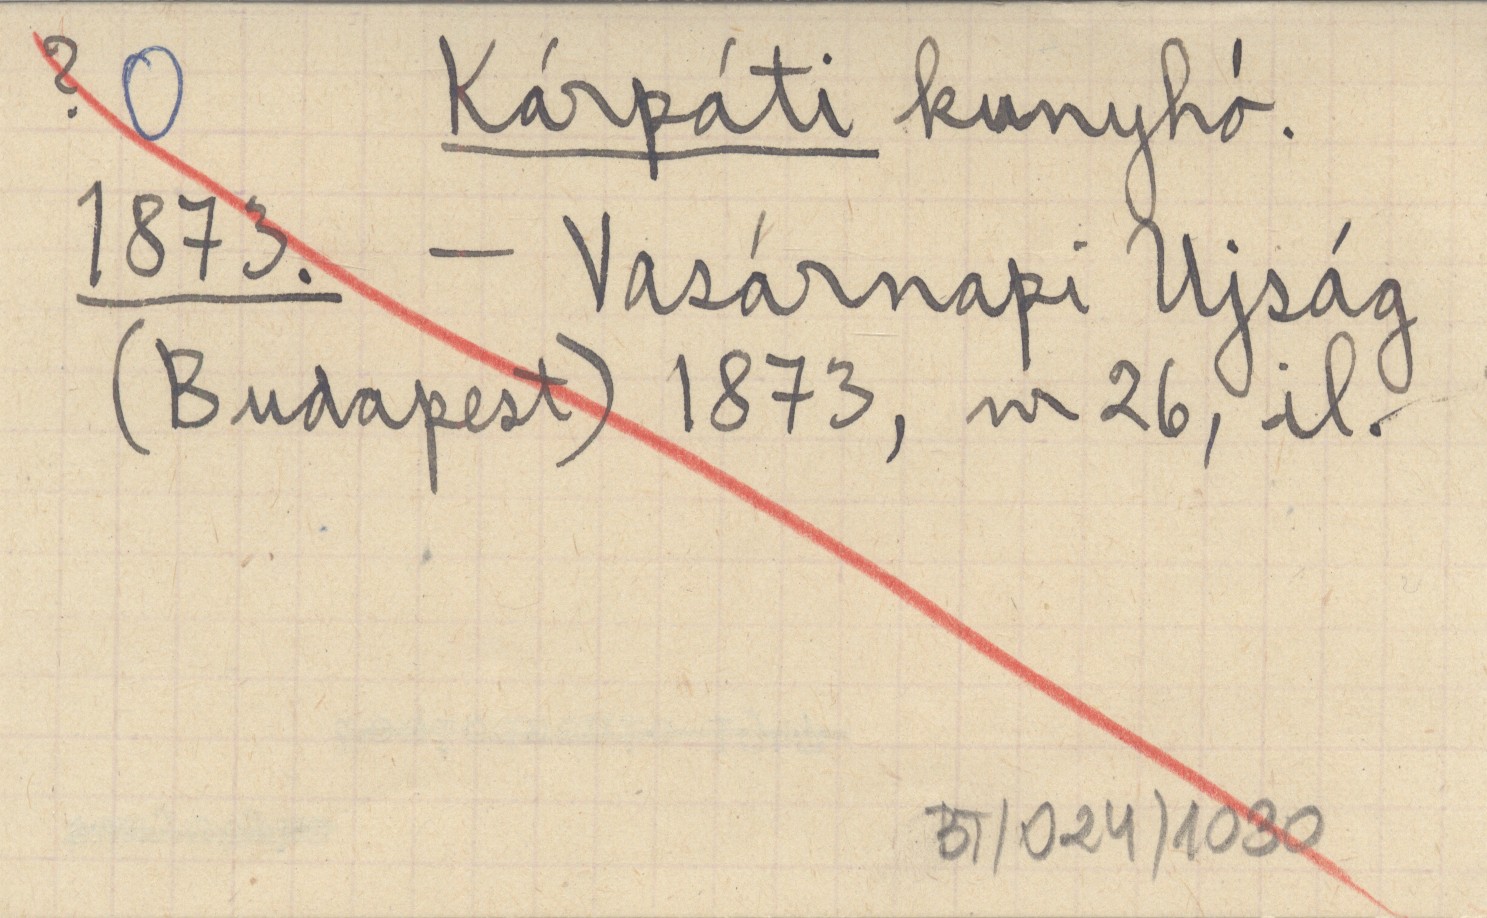 ? O Kárpáti kunyhó.
1873. — Vasárnapi Ujság
(Budapest) 1873, nr 26, il.
BT/024/1030